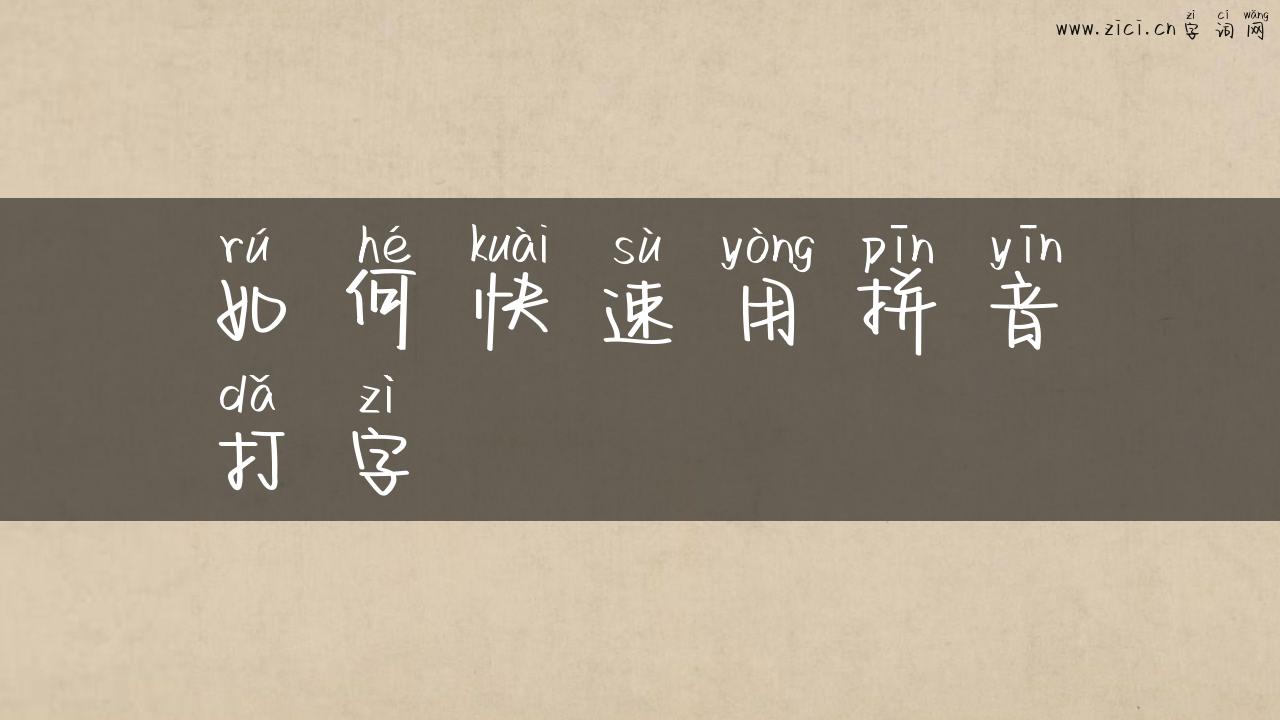 zì cí wǎng
www.zici.cn 字 词 网
rú hé kuài sù yòng pīn yīn
如 何 快 速 用 拼 音
dǎ zì
打 字